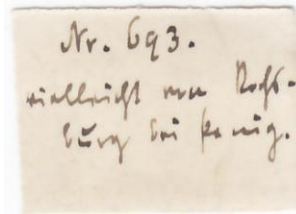 Nr. 693.
vielleicht von Rochs-
burg bei Penig.